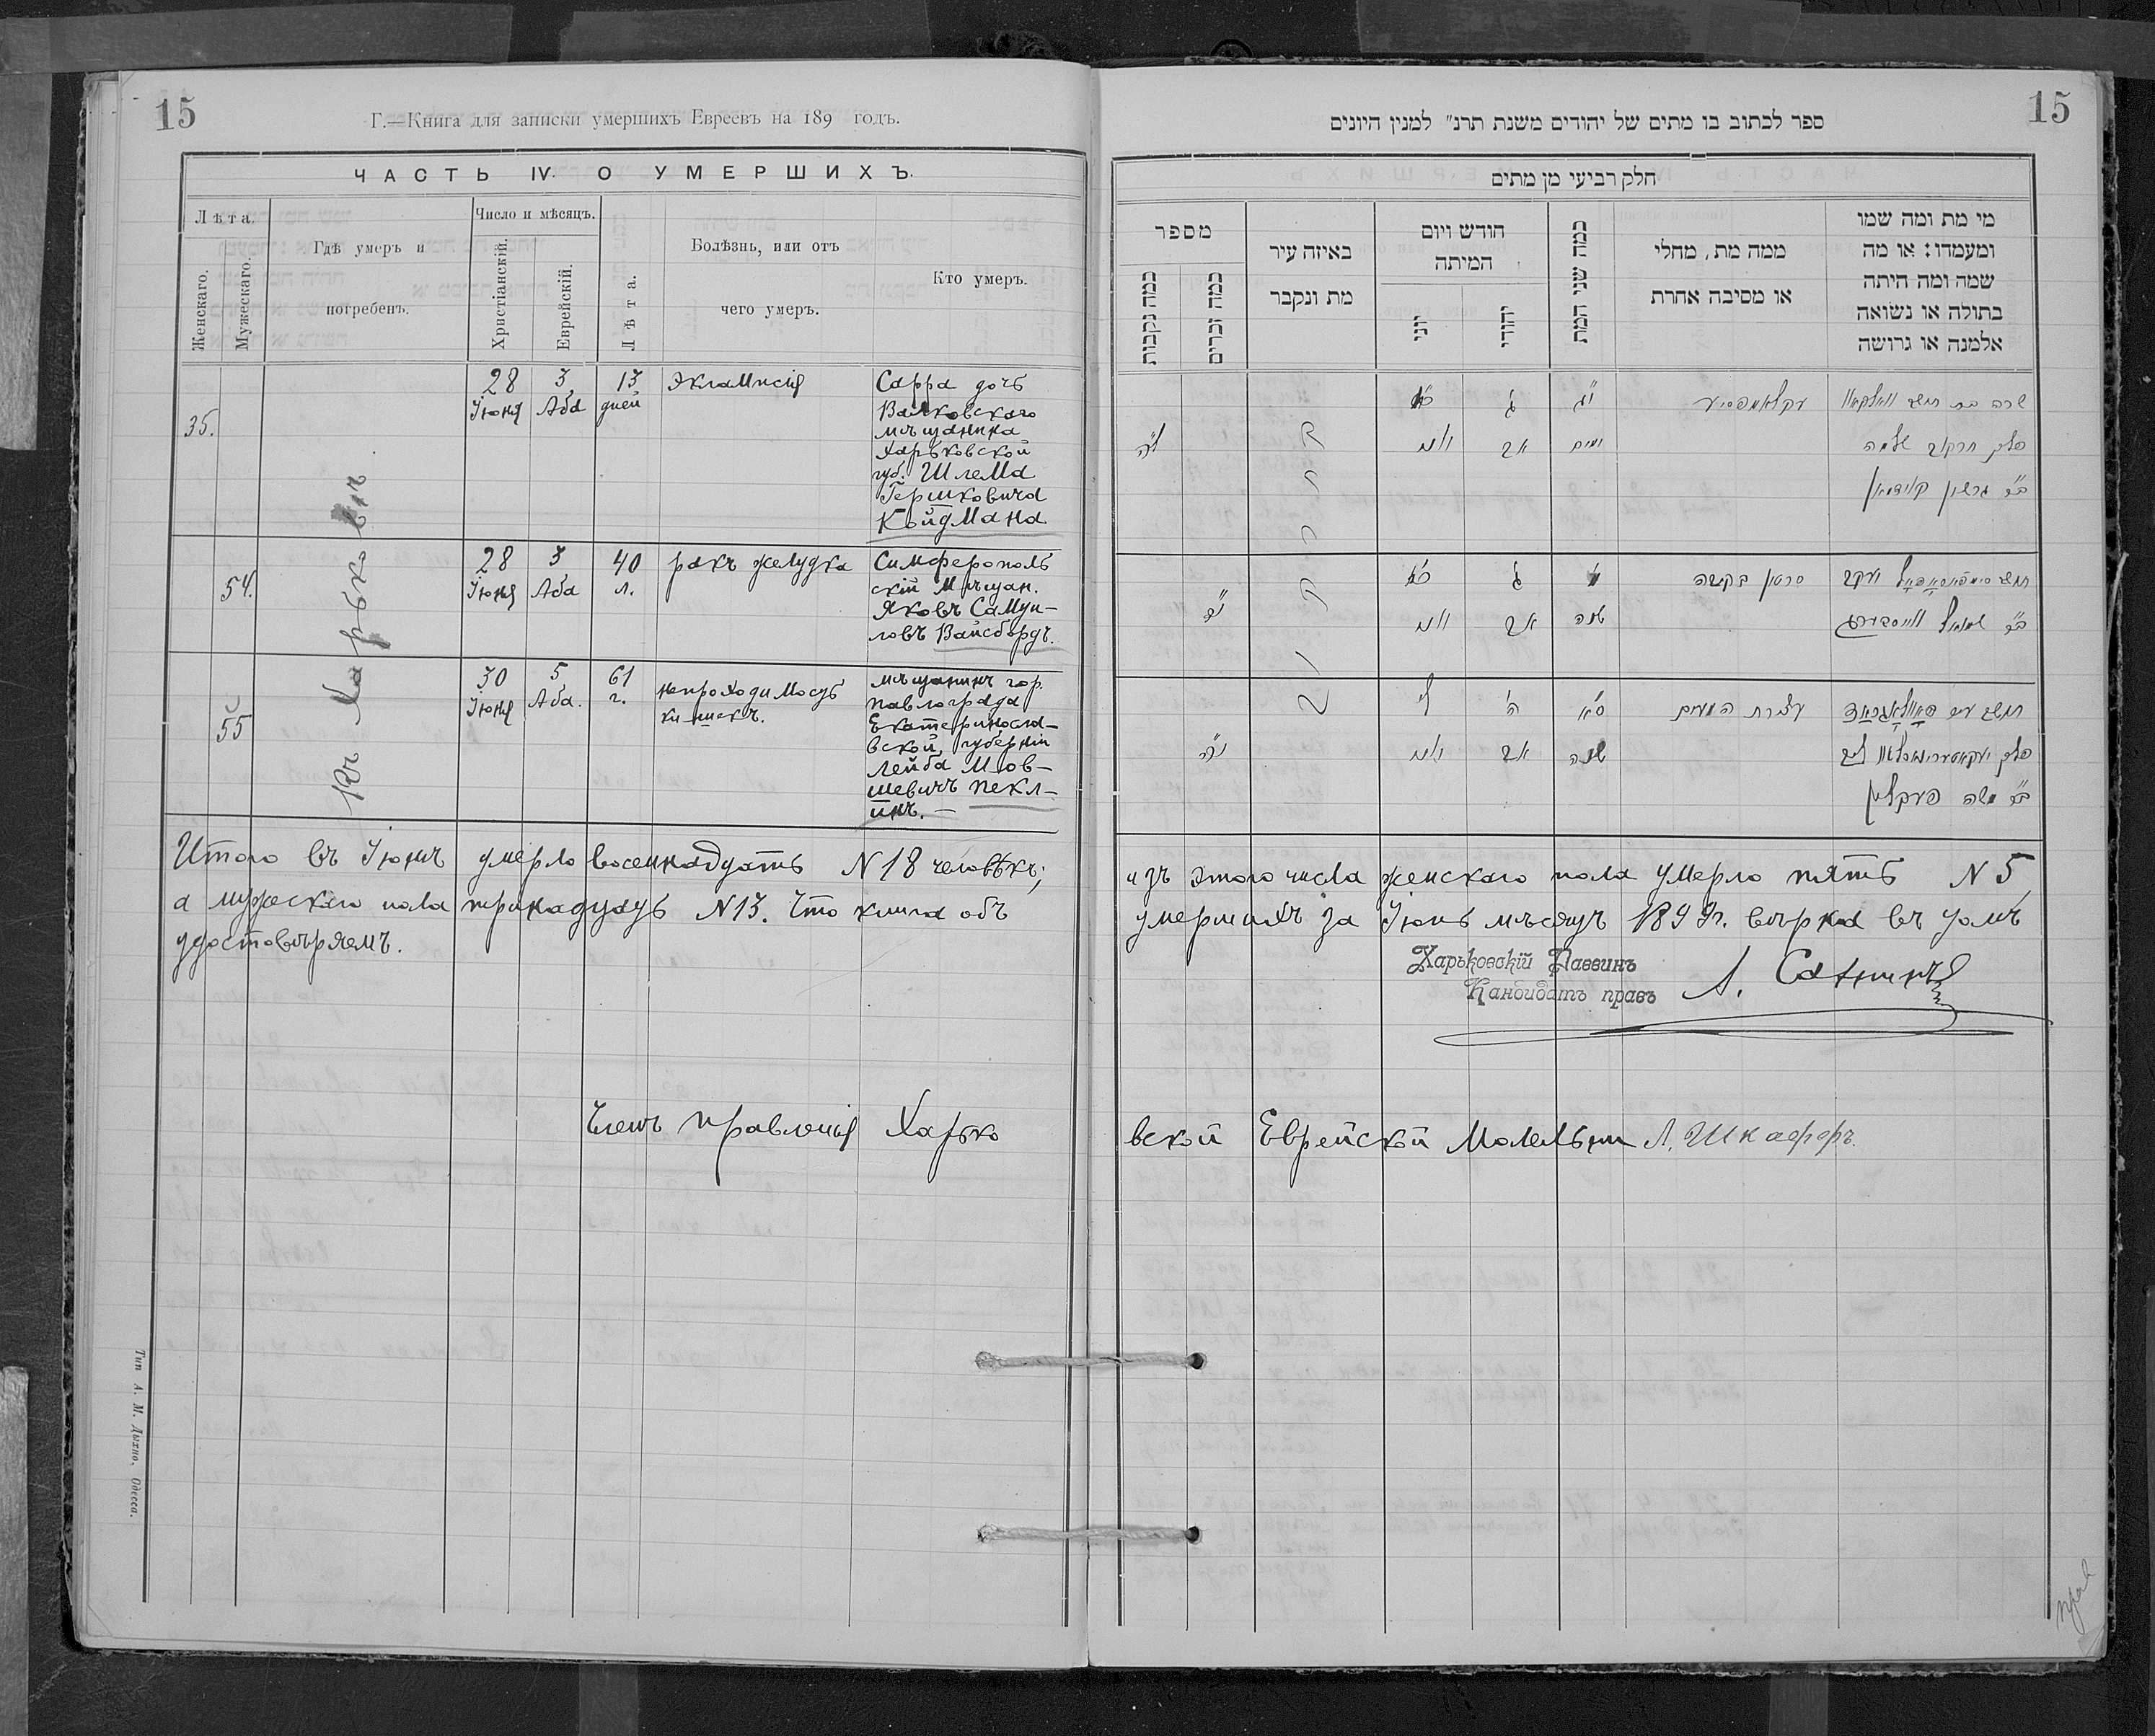 15
Г.—Книга для записки умершихъ Евреевъ на 189 годъ.
ЧАСТЬ IV. О УМЕРШИХЪ.
Лѣта.
Женскаго.
Мужескаго.
Гдѣ умеръ и
погребенъ.
Число и мѣсяцъ.
Христіанскій.
Еврейскій.
Лѣта.
Болѣзнь, или отъ
чего умеръ.
Кто умеръ.
35.
28
Іюня
3
Аба
13
дней
эклампсія
Сарра дочь
Валковскаго
мѣщанина
Харьковской
губ. Шлема
Гершковича
Койдмана
54.
28
Іюня
3
Аба
40
л.
ракъ желудка
Симферополь
скій Мѣщан.
Яковъ Самуи-
ловъ Вайсбордъ.
55
30
Іюня
5
Аба.
61
г.
непроходимость
кишекъ.
мѣщанинъ гор.
Павлограда
Екатериносла-
вской губерніи
Лейба Мов-
шевичъ Пекл-
инъ.
Въ Харьковѣ
Итого въ Іюнѣ умерло восемнадцать N 18 человѣкъ;
а мужескаго пола тринадцать N 13. Что книга объ
удостовѣряемъ.
Членъ Правленія Харько
Тип А. М. Дыхно, Одесса.
15
ספר לכתוב בו מתים של יהודים משנת תרנ״ למנין היונים
חלק רביעי מן מתים
מספר
כמה נקבות
כמה זכרים
באיזה עיר
מת ונקבר
חודש ויום
המיתה
יוני
יהודי
כמה שני המת
ממה מת, מחלי
או מסיבה אחרת
מי מת ומה שמו
ומעמדו: או מה
שמה ומה היתה
בתולה או נשואה
אלמנה או גרושה
ל״ה
ג׳
אב
י״ג
ימים
עקלאמפסיע
פלך חרקוב שלמה
ב״ר גרשון קוידמאן
נ״ד
ג׳
אב
מ׳
שנה
סרטן בקיבה
ב״ר שמואל ווייסבורד
נ״ה
ל׳
ה׳
אב
ס״א
שנה
עצירת המעים
ב״ר משה פעקלין
изъ этого числа женскаго пола умерло пять N 5,
умершихъ за Іюнь мѣсяцъ 1899г. вѣрна въ томъ
Харьковскій Раввинъ
Кандидатъ правъ
вской Еврейской Молельни Л. Шкаффъ.